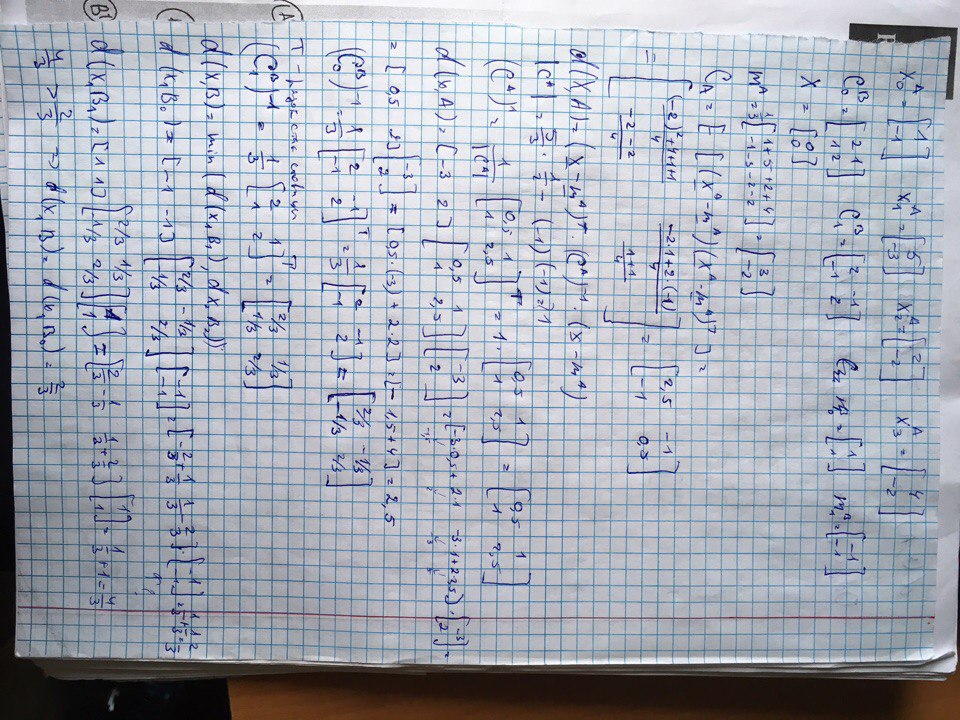 X₀ᴬ = [1; -1] X₁ᴬ = [5; -3] X₂ᴬ = [2; -2] X₃ᴬ = [4; -2]
C₀ᴮ = [2 1; 1 2] C₁ᴮ = [2 -1; -1 2] m₀ᴮ = [1; 1] m₁ᴮ = [-1; -1]
X = [0; 0]
mᴬ = 1/3 [1+5+2+4; -1-3-2-2] = [3; -2]
Cᴬ = E [(Xᴬ-mᴬ)(Xᴬ-mᴬ)ᵀ] =
= [((-2)²+4+1+1)/4 (-2·1+2·(-1))/4; (-2-2)/4 (1+1)/4] = [2,5 -1; -1 0,5]
d(X,A) = (X-mᴬ)ᵀ·(Cᴬ)⁻¹·(X-mᴬ)
|Cᴬ| = 5/2 · 1/2 - (-1)(-1) = 1
(Cᴬ)⁻¹ = 1/|Cᴬ| [0,5 1; 1 2,5]ᵀ = 1·[0,5 1; 1 2,5] = [0,5 1; 1 2,5]
d(X,A) = [-3 2] [0,5 1; 1 2,5] [-3; 2] = [-3·0,5+2·1 -3·1+2·2,5]·[-3; 2] =
= [0,5 2] [-3; 2] = [0,5·(-3)+2·2] = [-1,5+4] = 2,5
(C₀ᴮ)⁻¹ = 1/3 [2 -1; -1 2]ᵀ = 1/3 [2 -1; -1 2] = [2/3 -1/3; -1/3 2/3]
(C₁ᴮ)⁻¹ = 1/3 [2 1; 1 2]ᵀ = [2/3 1/3; 1/3 2/3]
d(X,B) = min(d(X,B₁), d(X,B₂))
d(X,B₀) = [-1 -1] [2/3 -1/3; -1/3 2/3] [-1; -1]
d(X,B₁) = [1 1] [2/3 1/3; 1/3 2/3] [1; 1] = 1/3+1 = 4/3
4/3 > 2/3 ⇒ d(X,B) = d(X,B₀) = 2/3